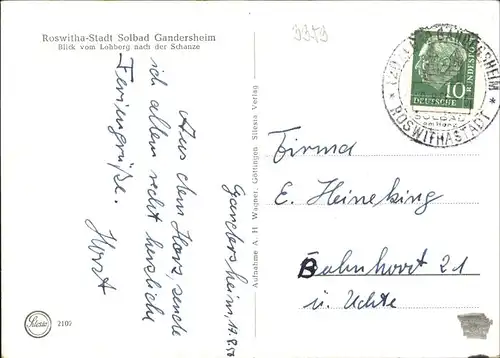 Roswitha-Stadt Solbad Gandersheim
Blick vom Lohberg nach der Schanze
3353
Gandersheim, 17.8.57
Aus dem Harz sende
ich allen recht herzliche
Feriengrüße.
Horst
Aufnahme A. H Wagner, Göttingen Silesia Verlag
GANDERSHEIM
SOLBAD
ROSWITHASTADT
10
DEUTSCHE
BUNDESPOST
Firma
E. Heineking
Bahnhorst 21
ü. Uchte
Silesia
2109